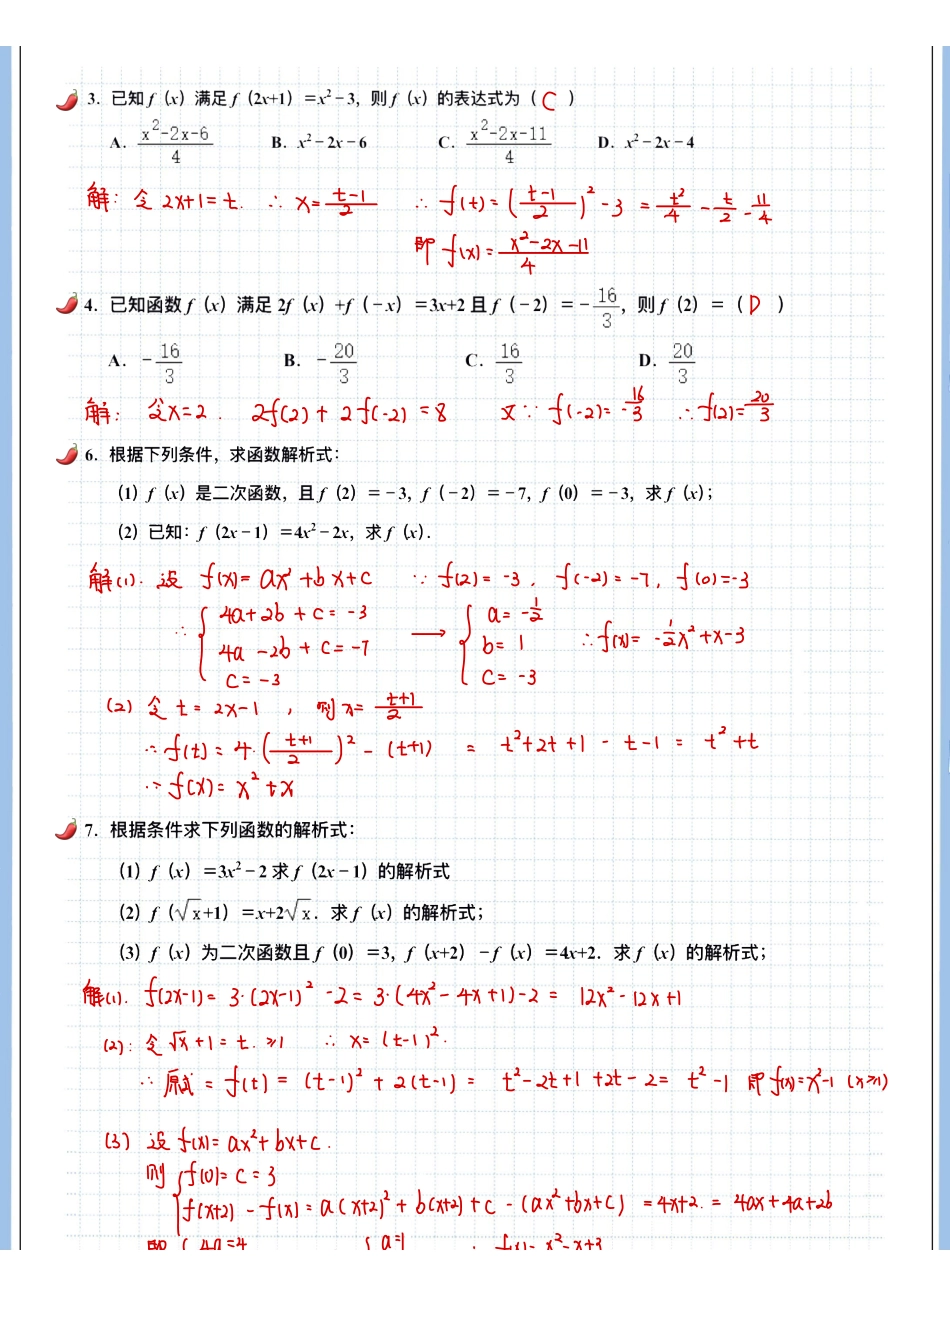 3. 已知 f（x）满足 f（2x+1）=x²－3，则 f（x）的表达式为（ C ）
A. (x²-2x-6)/4  B. x²－2x－6  C. (x²-2x-11)/4  D. x²－2x－4
解：令 2x+1=t. ∴ x=(t-1)/2  ∴ f(t)=((t-1)/2)²-3 = t²/4 - t/2 - 11/4
即 f(x)=(x²-2x-11)/4
4. 已知函数 f（x）满足 2f（x）+f（－x）=3x+2 且 f（－2）=－16/3，则 f（2）=（ D ）
A. －16/3  B. －20/3  C. 16/3  D. 20/3
解：令x=2. 2f(2)+2f(-2)=8  又∵ f(-2)=-16/3  ∴f(2)=20/3
6. 根据下列条件，求函数解析式：
（1）f（x）是二次函数，且 f（2）=－3，f（－2）=－7，f（0）=－3，求 f（x）；
（2）已知：f（2x－1）=4x²－2x，求 f（x）.
解(1). 设 f(x)=ax²+bx+c  ∵ f(2)=-3, f(-2)=-7, f(0)=-3
∴ { 4a+2b+c=-3  → { a=-1/2
4a-2b+c=-7  b=1  ∴f(x)=-1/2x²+x-3
c=-3  c=-3
(2) 令 t=2x-1, 则 x=(t+1)/2
∴f(t)=4·((t+1)/2)²-(t+1) = t²+2t+1-t-1=t²+t
∴f(x)=x²+x
7. 根据条件求下列函数的解析式：
（1）f（x）=3x²－2 求 f（2x－1）的解析式
（2）f（√x+1）=x+2√x. 求 f（x）的解析式；
（3）f（x）为二次函数且 f（0）=3，f（x+2）－f（x）=4x+2. 求 f（x）的解析式；
解(1). f(2x-1)=3·(2x-1)²-2=3·(4x²-4x+1)-2=12x²-12x+1
(2): 令 √x+1=t. ≥1  ∴ x=(t-1)².
∴ 原式=f(t)=(t-1)²+2(t-1)=t²-2t+1+2t-2=t²-1 即f(x)=x²-1 (x≥1)
(3) 设 f(x)=ax²+bx+c.
则 { f(0)=c=3
f(x+2)-f(x)=a(x+2)²+b(x+2)+c-(ax²+bx+c)=4x+2.=4ax+4a+2b
即 { 4a=4  { a=1  ∴ f(x)=x²-x+3